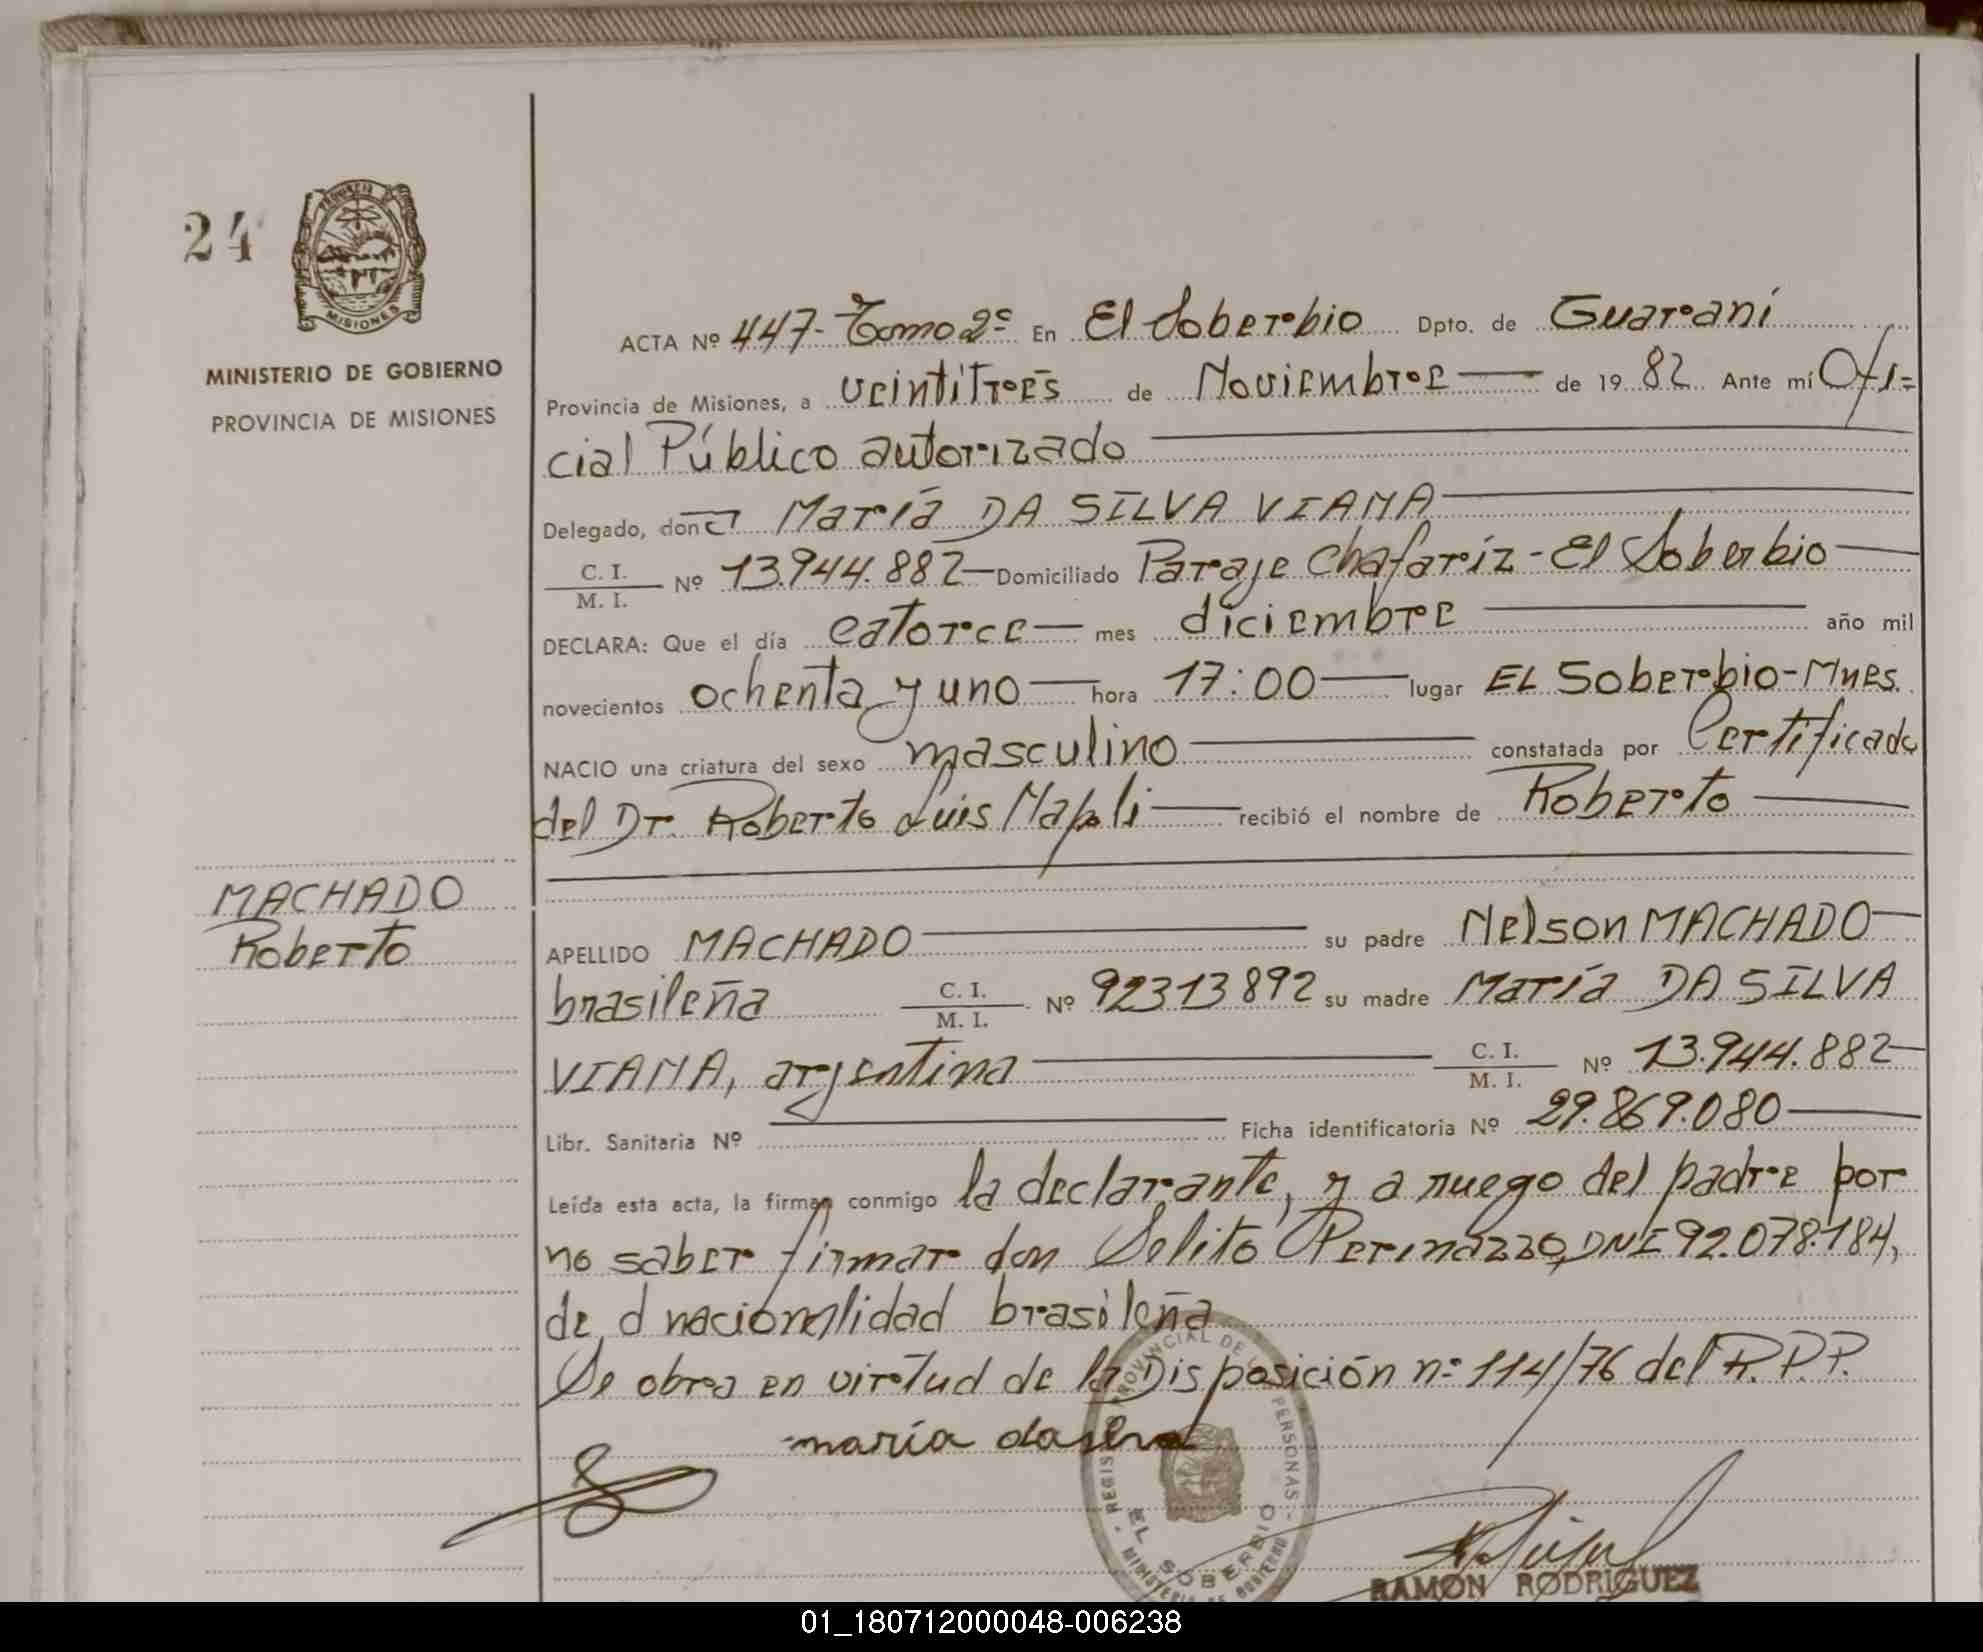 24
PROVINCIA DE
MISIONES
MINISTERIO DE GOBIERNO
PROVINCIA DE MISIONES
ACTA Nº 447- Tomo 2º En El Soberbio Dpto. de Guaraní
Provincia de Misiones, a veintitrés de Noviembre de 1982 Ante mí Ofi=
cial Público autorizado
Delegado, doña María DA SILVA VIANA
C. I.
M. I. Nº 13.944.882 Domiciliado Paraje Chafariz - El Soberbio
DECLARA: Que el día catorce mes diciembre año mil
novecientos ochenta y uno hora 17:00 lugar EL Soberbio-Mnes.
NACIO una criatura del sexo masculino constatada por Certificado
del Dr. Roberto Luis Napoli recibió el nombre de Roberto
MACHADO
Roberto
APELLIDO MACHADO su padre Nelson MACHADO
brasileña C. I.
M. I. Nº 92313892 su madre María DA SILVA
VIANA, argentina C. I.
M. I. Nº 13.944.882
Libr. Sanitaria Nº Ficha identificatoria Nº 29.869.080
Leída esta acta, la firman conmigo la declarante, y a ruego del padre por
no saber firmar don Selito Perinazzo, DNI 92.078.184,
de d nacionalidad brasileña
Se obra en virtud de la Disposición nº 114/76 del R.P.P.
maría dasilva
PROVINCIAL DE PERSONAS
EL SOBERBIO
MINISTERIO DE GOBIERNO
RAMON RODRIGUEZ
01_180712000048-006238